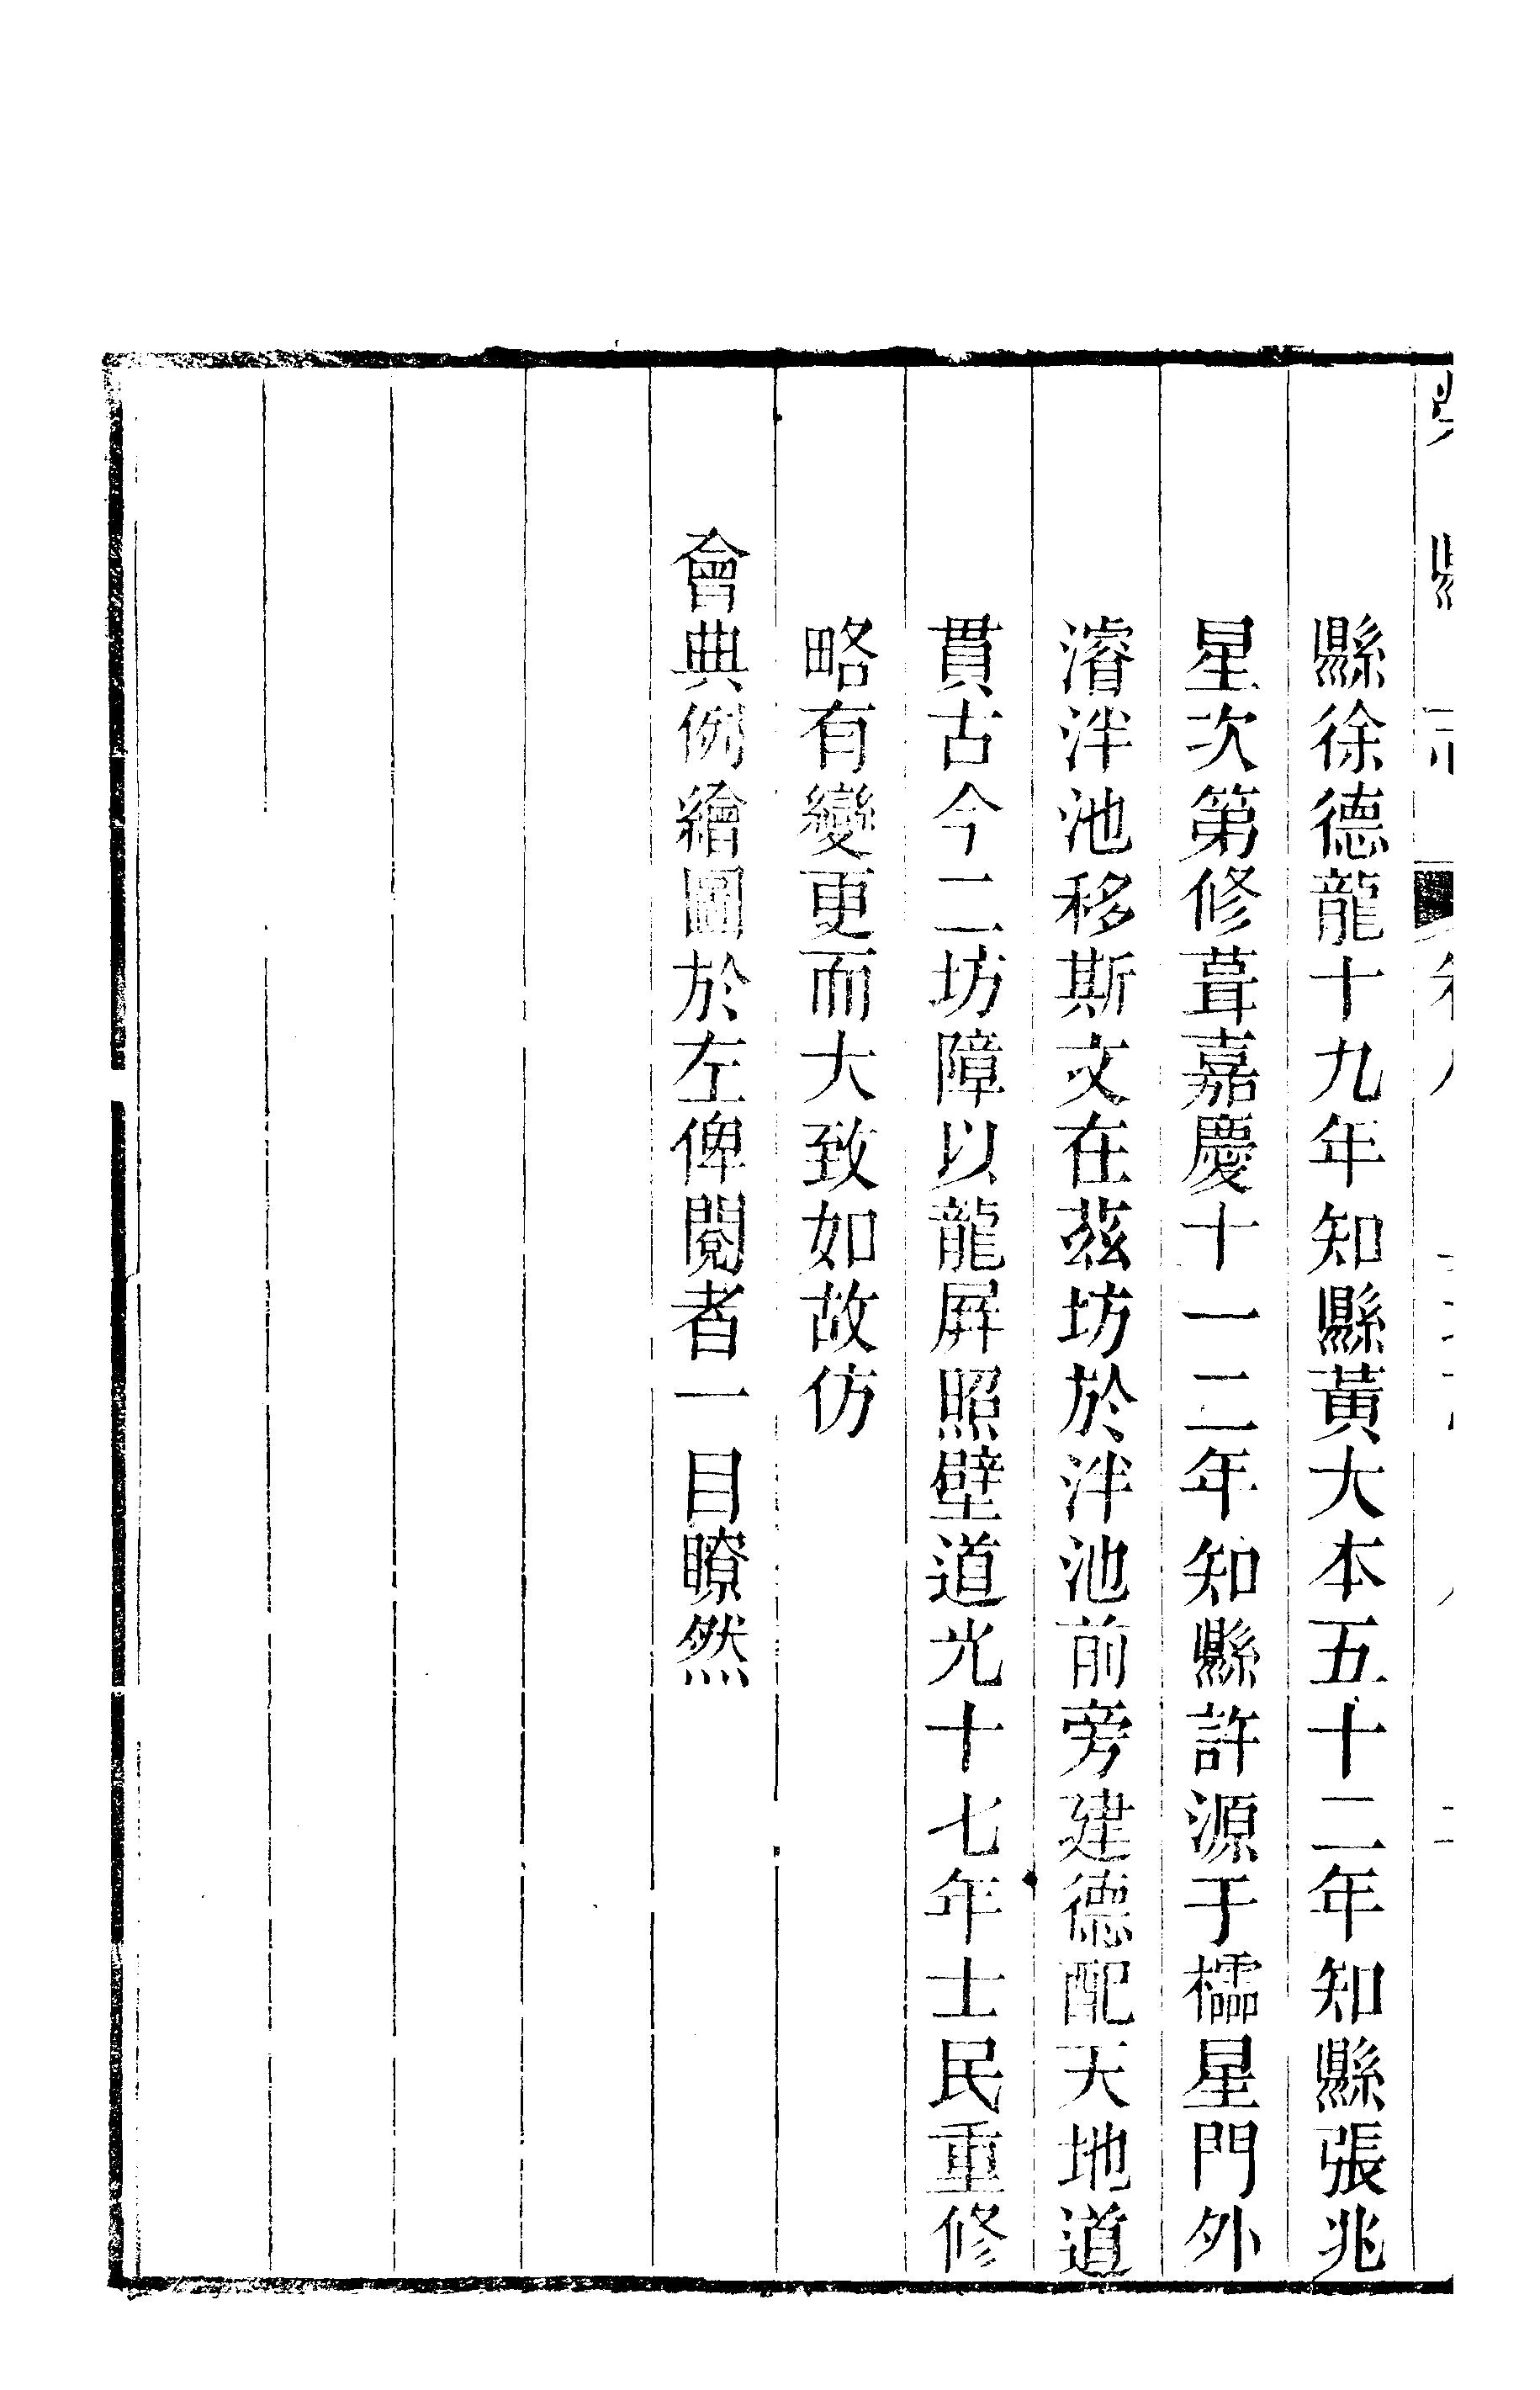 縣徐德龍十九年知縣黃大本五十二年知縣張兆
星次第修葺嘉慶十一二年知縣許源于櫺星門外
濬泮池移斯文在茲坊於泮池前旁建德配天地道
貫古今二坊障以龍屏照壁道光十七年士民重修
略有變更而大致如故仿
會典例繪圖於左俾閱者一目瞭然